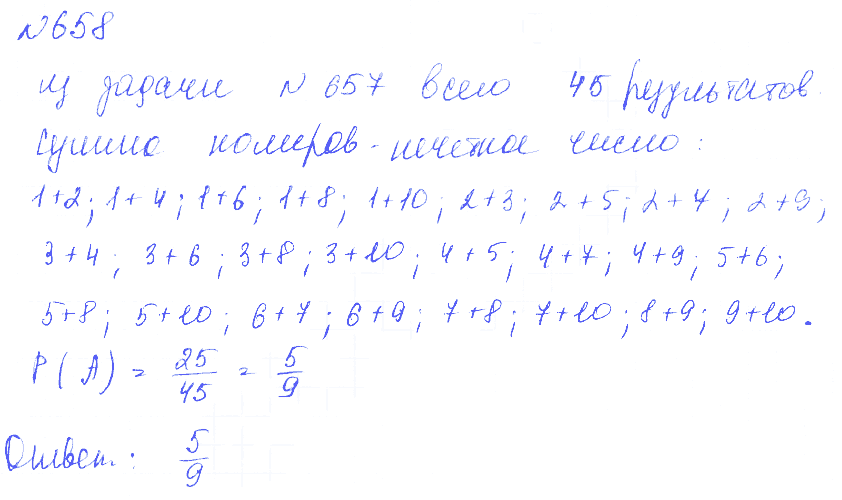 №658
из задачи №657 всего 45 результатов.
Сумма номеров - нечетное число:
1+2; 1+4; 1+6; 1+8; 1+10; 2+3; 2+5; 2+7; 2+9;
3+4; 3+6; 3+8; 3+10; 4+5; 4+7; 4+9; 5+6;
5+8; 5+10; 6+7; 6+9; 7+8; 7+10; 8+9; 9+10.
P(A) = 25/45 = 5/9
Ответ: 5/9